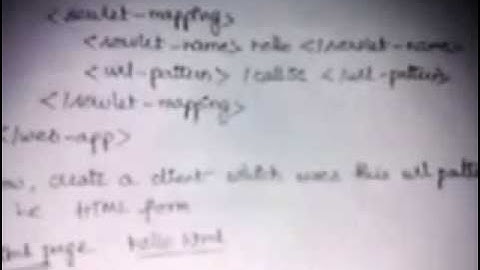 <servlet-mapping>
<servlet-name> hello </servlet-name>
<url-pattern> /callsc </url-pattern>
</servlet-mapping>
</web-app>
create a client which uses this url
HTML form
page hello.html